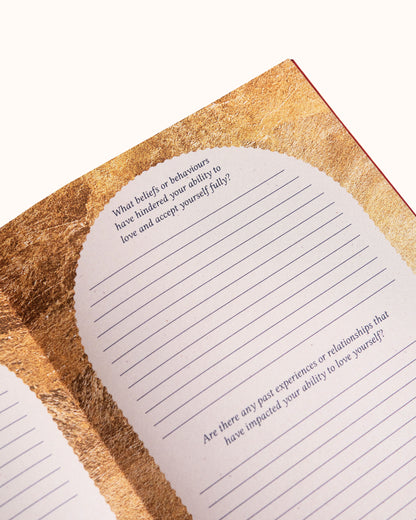 What beliefs or behaviours
have hindered your ability to
love and accept yourself fully?
Are there any past experiences or relationships that
have impacted your ability to love yourself?